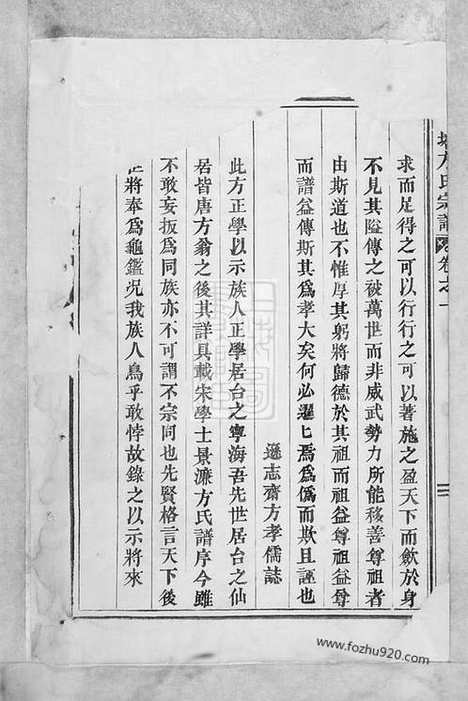 方氏宗譜 卷之一
求而足得之可以行行之可以著施之盈天下而斂於身
不見其隘傳之被萬世而非威武勢力所能移善尊祖者
由斯道也不惟厚其躬將歸德於其祖而祖益尊祖益尊
而譜益傳斯其為孝大矣何必遑七焉為僞而欺且誣也
遜志齋方孝儒誌
此方正學以示族人正學居台之寧海吾先世居台之仙
居皆唐方翁之後其詳具載宋學士景濂方氏譜序今雖
不敢妄扳為同族亦不可謂不宗同也先賢格言天下後
世將奉為龜鑑况我族人烏乎敢悖故錄之以示將來
www.fozhu920.com